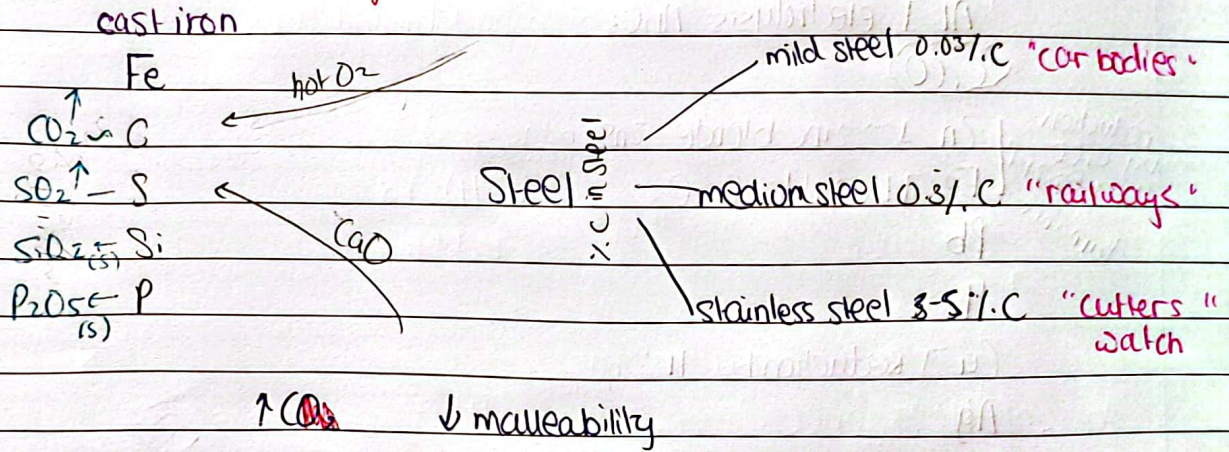 cast iron
Fe
hot O2
CO2 ↑ ← C
SO2 ↑ ← S
SiO2(s) ← Si
P2O5(s) ← P
CaO
Steel
% C in Steel
mild steel 0.03%.C "car bodies"
mediom steel 0.3%.C "railways"
stainless steel 3-5%.C "cutters"
watch
↑ C ↓ malleability